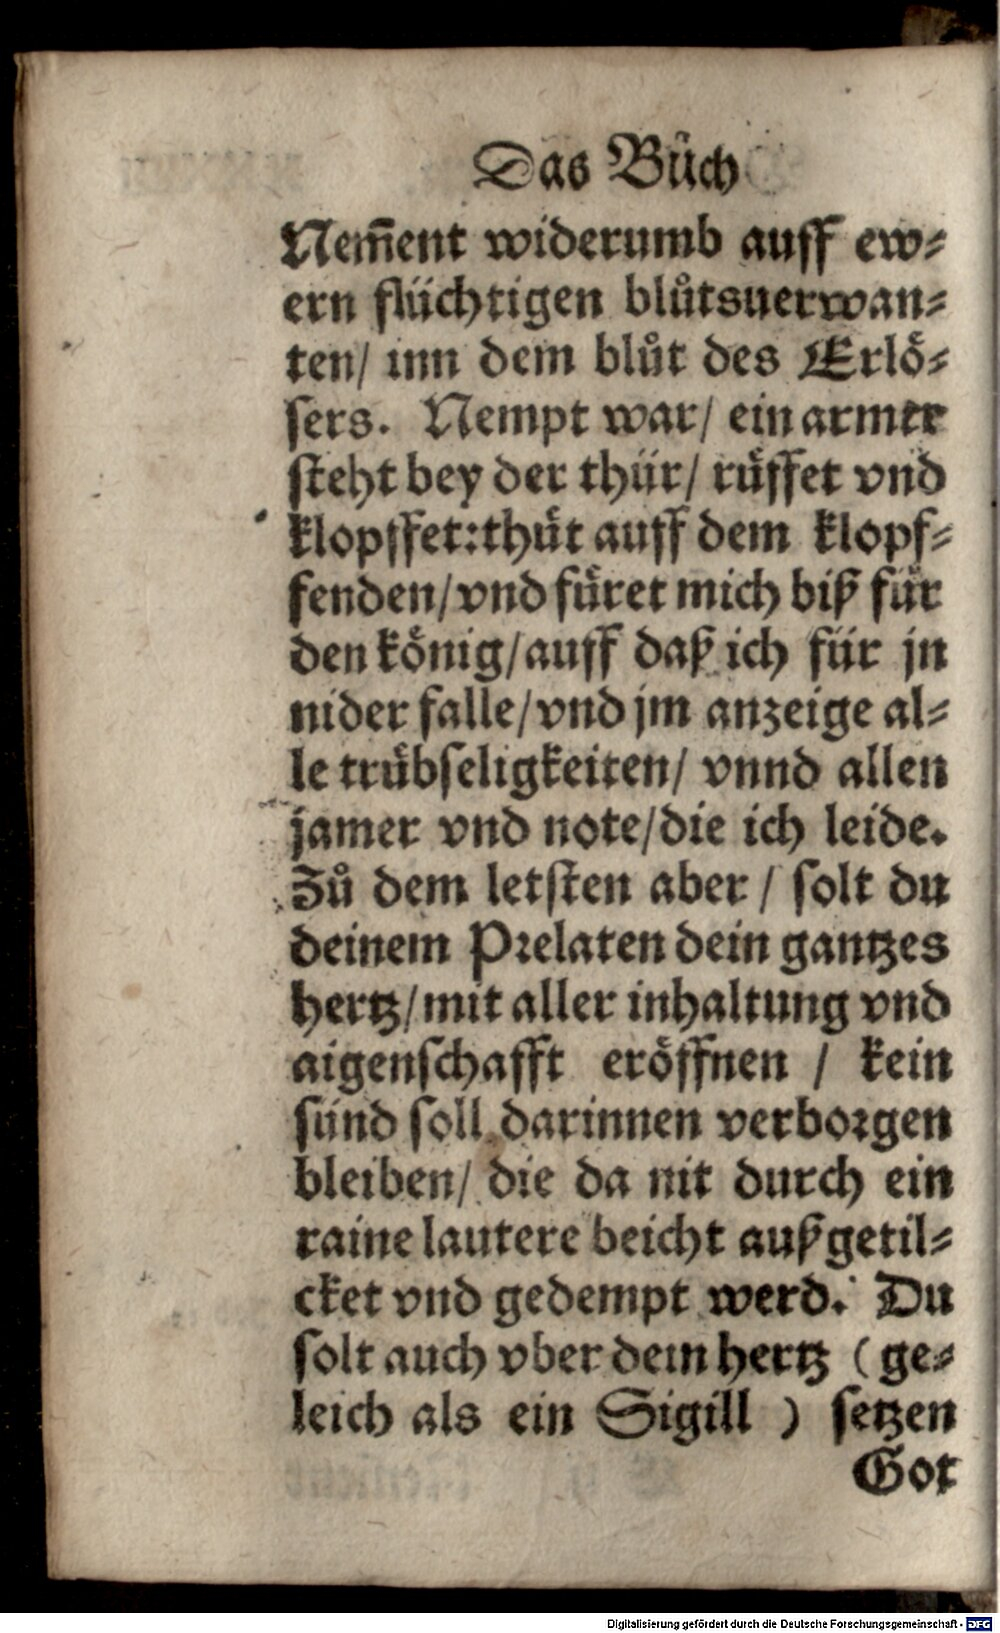 Das Bůch
Nem̄ent widerumb auff ew⸗
ern flüchtigen blůtsuerwan⸗
ten/ inn dem blůt des Erlö⸗
sers. Nempt war/ ein armer
steht bey der thür/ rüffet vnd
klopffet: thůt auff dem klopf⸗
fenden/ vnd füret mich biß für
den könig/ auff daß ich für jn
nider falle/ vnd jm anzeige al⸗
le trübseligkeiten/ vnnd allen
jamer vnd note/ die ich leide.
Zů dem letsten aber / solt du
deinem Prelaten dein gantzes
hertz/ mit aller inhaltung vnd
aigenschafft eröffnen / kein
sünd soll darinnen verborgen
bleiben/ die da nit durch ein
raine lautere beicht außgetil⸗
cket vnd gedempt werd. Du
solt auch vber dein hertz ( ge⸗
leich als ein Sigill ) setzen
Got
Digitalisierung gefördert durch die Deutsche Forschungsgemeinschaft - DFG